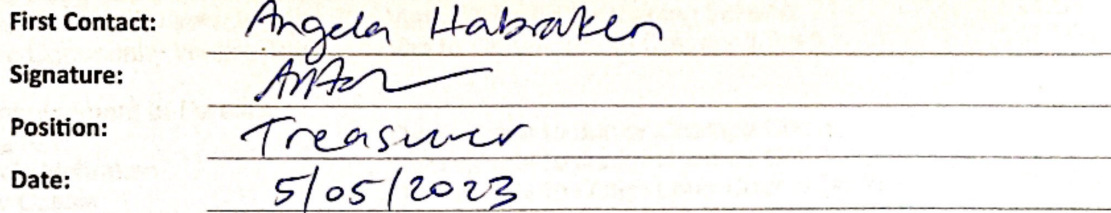 First Contact: Angela Habraken
Signature:
Position: Treasurer
Date: 5/05/2023